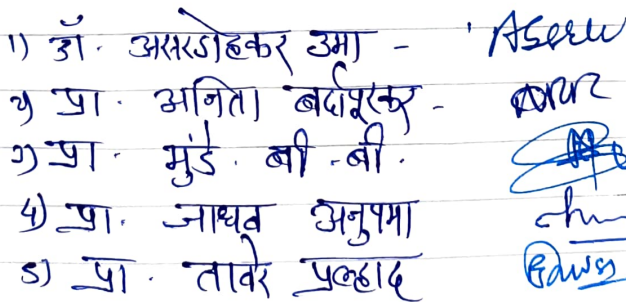 1) डॉ. असरडोहकर उमा -
२) प्रा. अनिता बर्दापूरकर -
३) प्रा. मुंडे. बी. बी.
4) प्रा. जाधव अनुपमा
5) प्रा. तावरे प्रल्हाद